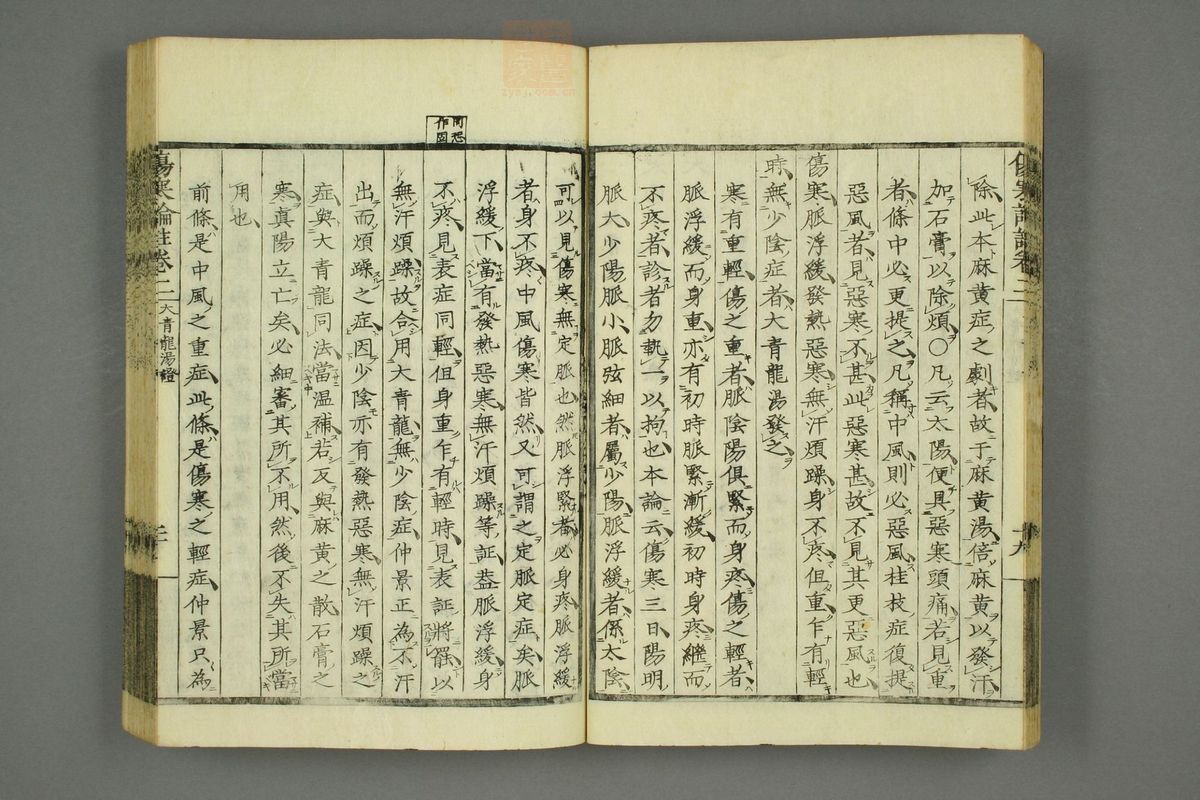 傷寒論註卷二
除此本麻黃症之劇者故于麻黃湯倍麻黃以發汗
加石膏以除煩〇凡云太陽便具惡寒頭痛若見重
者條中必更提之凡稱中風則必惡風桂枝症復提
惡風者見惡寒不甚此惡寒甚故不見其更惡風也
傷寒脈浮緩發熱惡寒無汗煩躁身不疼但重乍有輕
時無少陰症者大青龍湯發之
寒有重輕傷之重者脈陰陽俱緊而身疼傷之輕者
脈浮緩而身重亦有初時脈緊漸緩初時身疼繼而
不疼者診者勿執一以拘也本論云傷寒三日陽明
脈大少陽脈小脈弦細者屬少陽脈浮緩者係太陰
可以見傷寒無定脈也然脈浮緊者必身疼脈浮緩
者身不疼中風傷寒皆然又可謂之定脈定症矣脈
浮緩下當有發熱惡寒無汗煩躁等証蓋脈浮緩身
不疼見表症同輕但身重乍有輕時見表証將罷以
無汗煩躁故合用大青龍無少陰症仲景正為不汗
出而煩躁之症因少陰亦有發熱惡寒無汗煩躁之
症與大青龍同法當溫補若反與麻黃之散石膏之
寒真陽立亡矣必細審其所不用然後不失其所當
用也
前條是中風之重症此條是傷寒之輕症仲景只為
傷寒論註卷二
大青龍湯證
同恐
作因